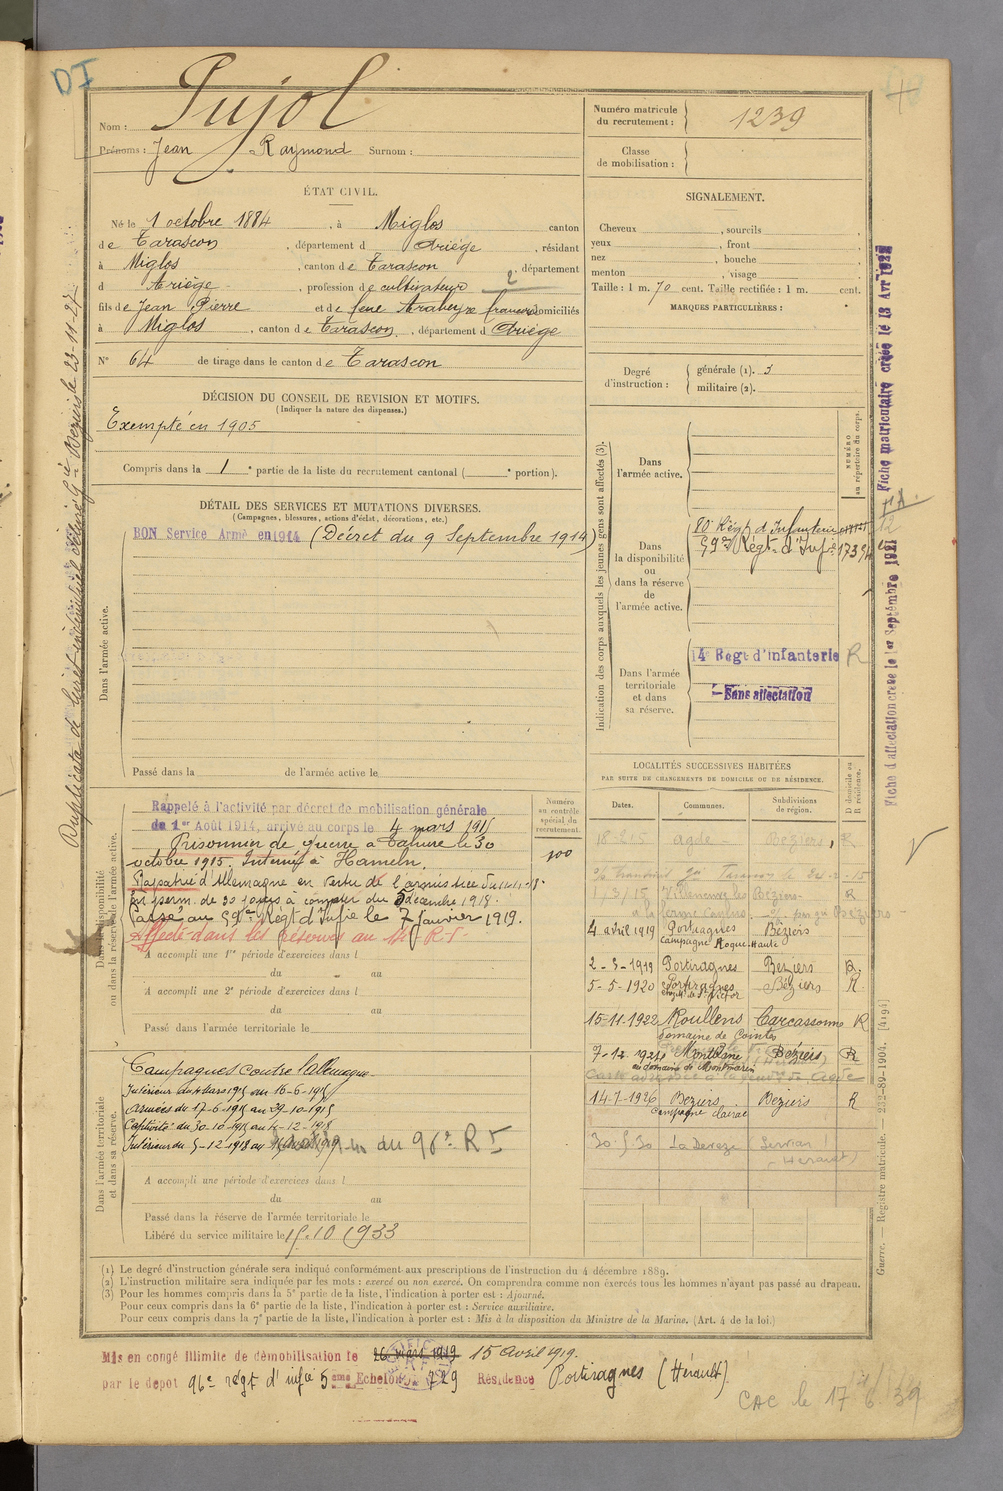 DI
Nom : Pujol
Prénoms : Jean Raymond Surnom :
Numéro matricule du recrutement : 1239
Classe de mobilisation :
ÉTAT CIVIL.
Né le 1 octobre 1884, à Miglos canton
de Tarascon, département d Ariège, résidant
à Miglos, canton de Tarascon, département
d Ariège, profession de cultivateur 2
fils de Jean Pierre et de feue domiciliés
à Miglos, canton de Tarascon, département d Ariège
N° 64 de tirage dans le canton de Tarascon
SIGNALEMENT.
Cheveux , sourcils ,
yeux , front ,
nez , bouche ,
menton , visage
Taille : 1 m. 70 cent. Taille rectifiée : 1 m. cent.
MARQUES PARTICULIÈRES :
Degré d'instruction : générale (1). 3
militaire (2).
DÉCISION DU CONSEIL DE REVISION ET MOTIFS.
(Indiquer la nature des dispenses.)
Exempté en 1905
Compris dans la 1e partie de la liste du recrutement cantonal ( e portion).
DÉTAIL DES SERVICES ET MUTATIONS DIVERSES.
(Campagnes, blessures, actions d'éclat, décorations, etc.)
BON Service Armé en 1914 (Décret du 9 Septembre 1914)
Dans l'armée active.
Passé dans la de l'armée active le
Indication des corps auxquels les jeunes gens sont affectés (3).
NUMÉRO au répertoire du corps.
Dans l'armée active.
Dans la disponibilité ou dans la réserve de l'armée active.
80e Régt d'Infanterie
99e Régt d'Infie
Dans l'armée territoriale et dans sa réserve.
14e Regt d'Infanterie R
Sans affectation
Dans la disponibilité ou dans la réserve de l'armée active.
Numéro au contrôle spécial du recrutement.
100
Rappelé à l'activité par décret de mobilisation générale
du 1er Août 1914, arrivé au corps le 4 mars 1915
Prisonnier de guerre à Tahure le 30
octobre 1915. Interné à Hameln.
Rapatrié d'Allemagne en vertu de l'armistice du
En perm. de 30 jours à compter du 5 decembre 1918.
Passé au 99e Régt d'Infie le 7 janvier 1919.
Affecté dans les réserves au R.I.
A accompli une 1re période d'exercices dans l
du au
A accompli une 2e période d'exercices dans l
du au
Passé dans l'armée territoriale le
Dans l'armée territoriale et dans sa réserve.
Campagnes contre l'Allemagne
Intérieur du 4 Mars 1915 au 16-6-1915
Armées du 17-6-1915 au 29-10-1915
Captivité du 30-10-1915 au 4-12-1918
Intérieur du 5-12-1918 au
du 96e R I
A accompli une période d'exercices dans l
du au
Passé dans la réserve de l'armée territoriale le
Libéré du service militaire le 15.10.1933
LOCALITÉS SUCCESSIVES HABITÉES
PAR SUITE DE CHANGEMENTS DE DOMICILE OU DE RÉSIDENCE.
Dates. Communes. Subdivisions de région. D domicile ou R résidence.
18-2-15 Agde Béziers R
1/3/15 Villeneuve les Béziers R
4 avril 1919 Portiragnes Béziers
Campagne Roque Haute
2-3-1919 Portiragnes Béziers R.
5-5-1920 Portiragnes Béziers R.
15-11-1922 Roullens Carcassonne R
domaine de Cointes
7-12-1924 Béziers R
au domaine de Montmarin
14-1-1926 Béziers Béziers R
Campagne Clairac
30-5-30 La Devèze (Servian)
(Hérault)
(1) Le degré d'instruction générale sera indiqué conformément aux prescriptions de l'instruction du 4 décembre 1889.
(2) L'instruction militaire sera indiquée par les mots : exercé ou non exercé. On comprendra comme non exercés tous les hommes n'ayant pas passé au drapeau.
(3) Pour les hommes compris dans la 5e partie de la liste, l'indication à porter est : Ajourné.
Pour ceux compris dans la 6e partie de la liste, l'indication à porter est : Service auxiliaire.
Pour ceux compris dans la 7e partie de la liste, l'indication à porter est : Mis à la disposition du Ministre de la Marine. (Art. 4 de la loi.)
Mis en congé illimité de démobilisation le 26 mars 1919 15 Avril 1919.
par le dépôt 96e régt d'infie 5eme Echelon No 729 Résidence Portiragnes (Hérault).
CAC le 17 6 39
Duplicata de livret individuel Béziers le 23-11-27
Fiche matriculaire créée le 13 Avr 1922
Fiche d'affectation créée le 1er Septembre 1921
Guerre. — Registre matricule. — 232-89-1904. [4194]